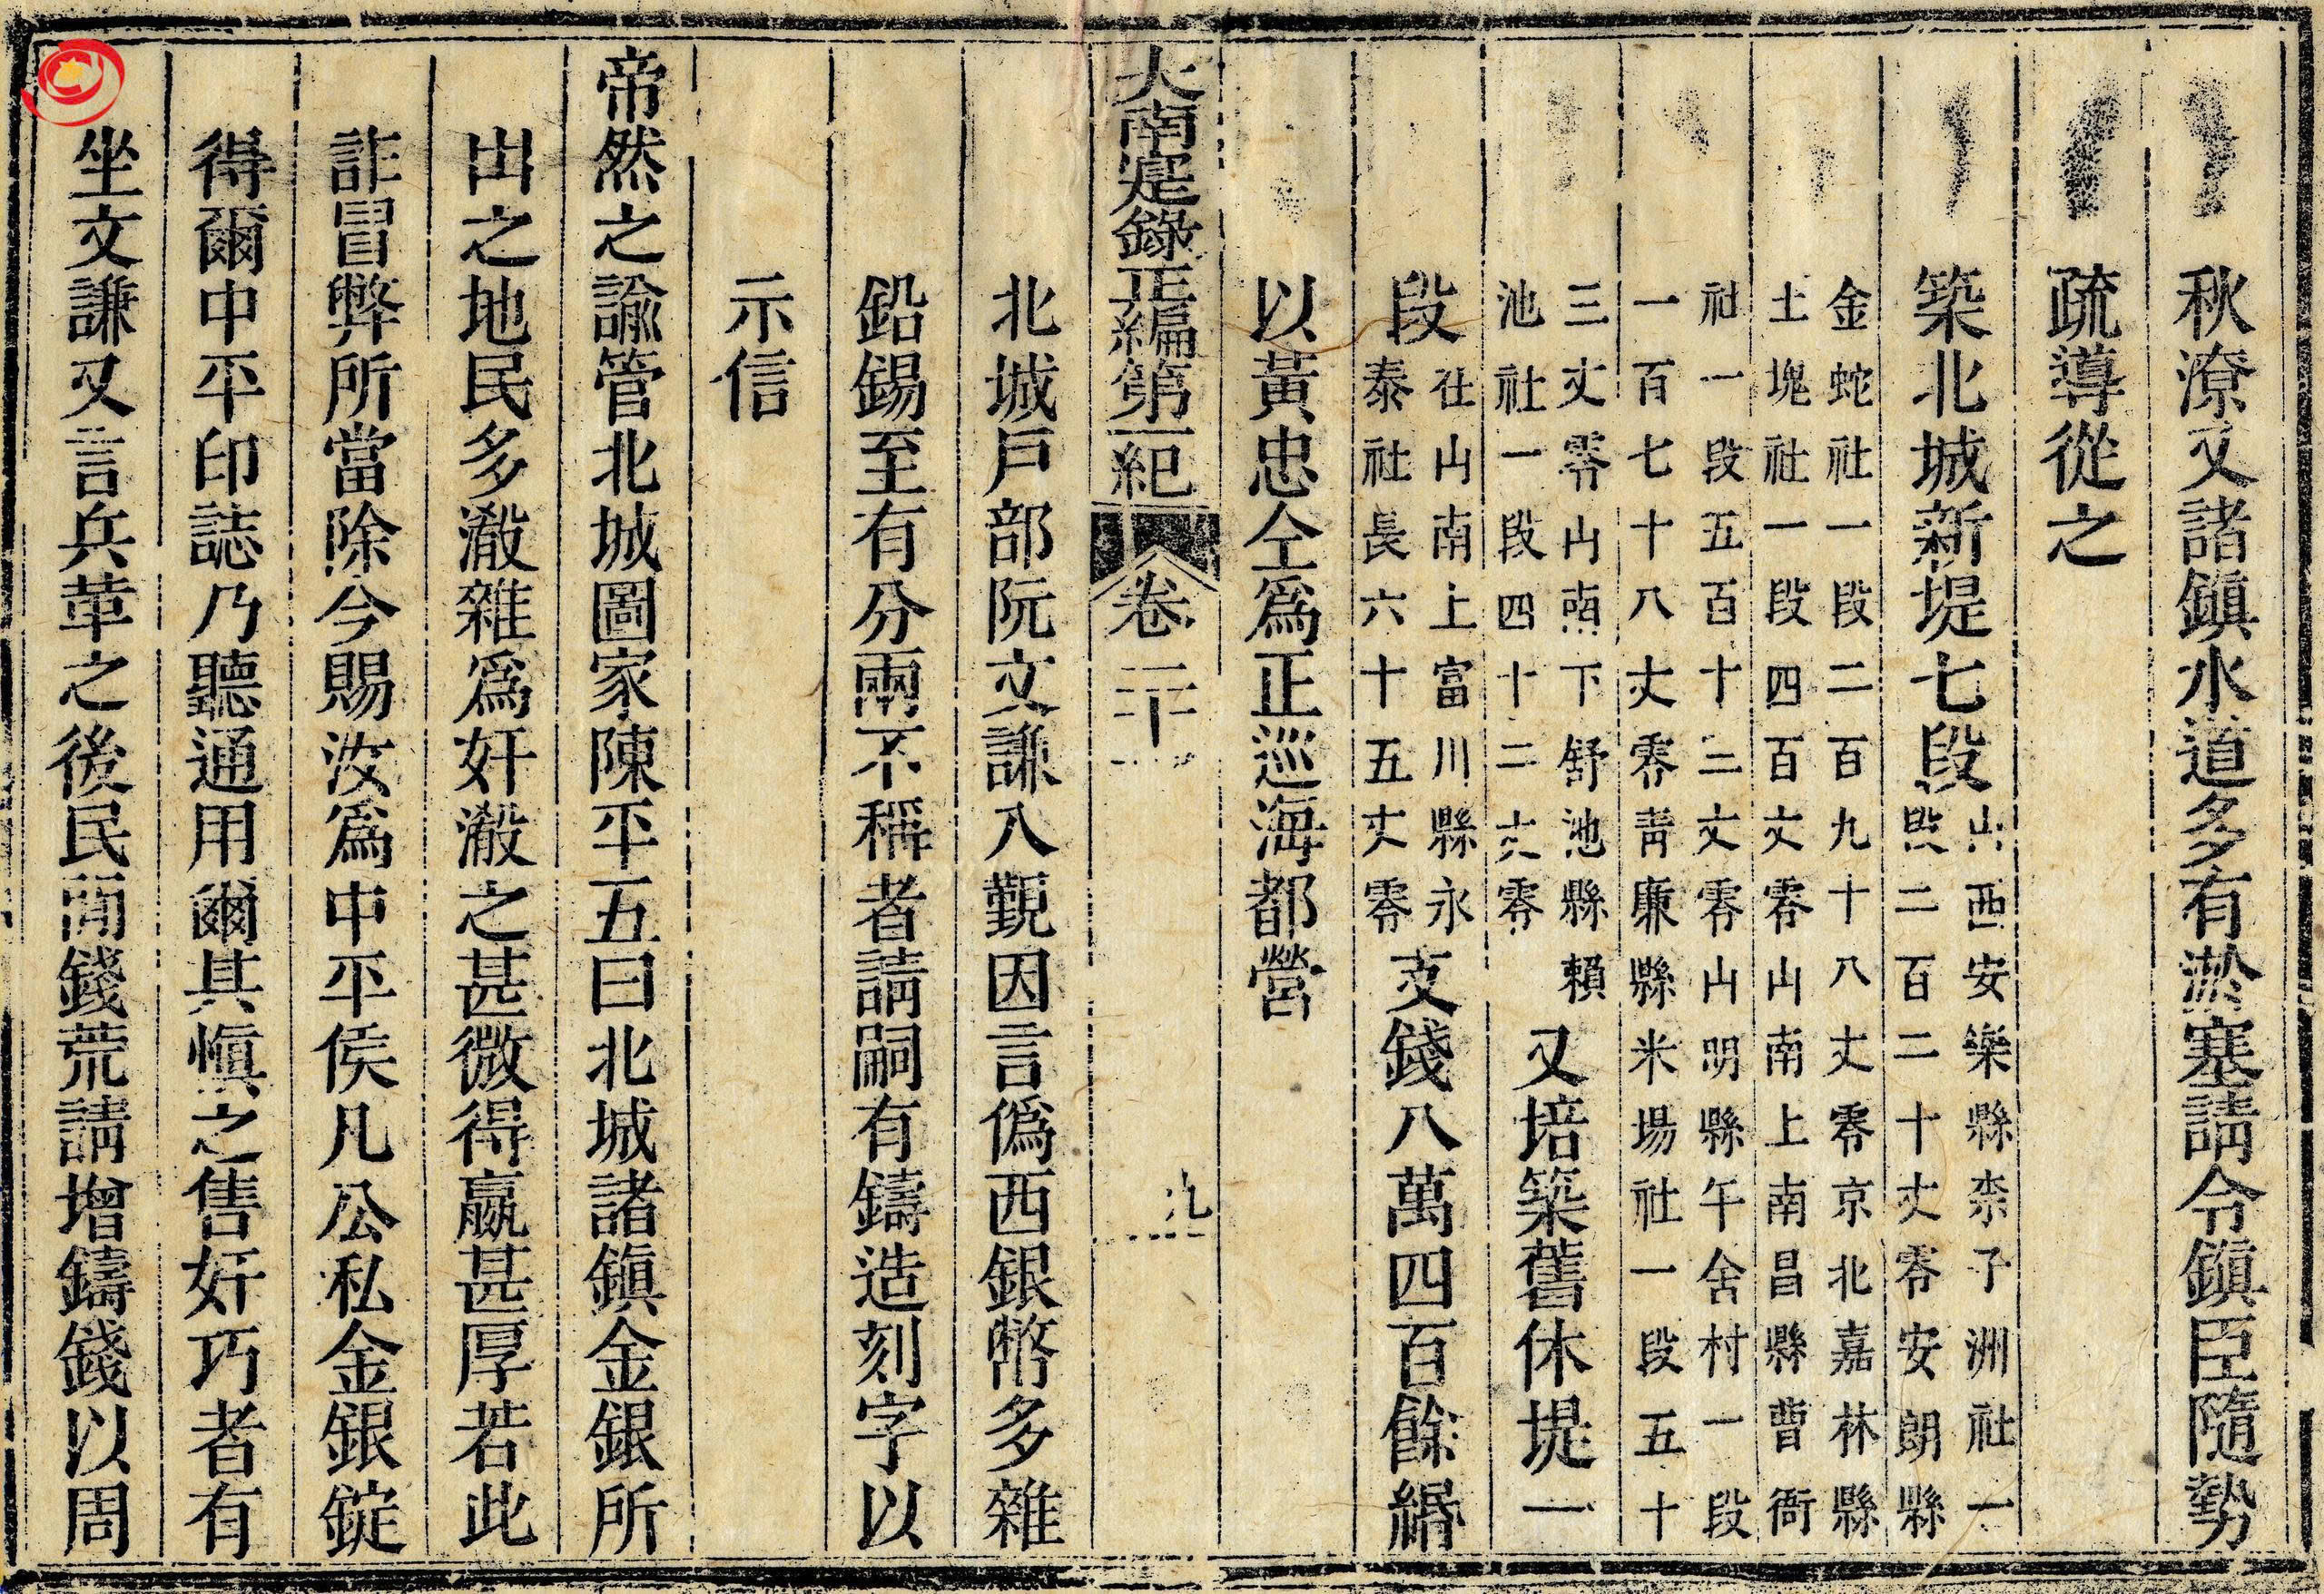 秋潦又諸鎮水道多有淤塞請令鎮臣隨勢
疏導從之
築北城新堤七段山西安樂縣柰子洲社一
段二百二十丈零安朗縣
金蛇社一段二百九十八丈零京北嘉林縣
土塊社一段四百丈零山南上南昌縣曹衙
社一段五百十三丈零山明縣午舍村一段
一百七十八丈零青廉縣米場社一段五十
三丈零山南下舒池縣賴
池社一段四十二丈零又培築舊休堤一
段在山南上富川縣永
泰社長六十五丈零支錢八萬四百餘緡
以黃忠仝爲正巡海都營
大南寔錄正編第一紀 卷二十 九
北城戶部阮文謙入覲因言僞西銀幣多雜
鉛錫至有分兩不稱者請嗣有鑄造刻字以
示信
帝然之諭管北城圖家陳平五曰北城諸鎮金銀所
出之地民多殽雜爲奸殽之甚微得嬴甚厚若此
詐冒弊所當除今賜汝爲中平侯凡公私金銀錠
得爾中平印誌乃聽通用爾其慎之售奸巧者有
坐文謙又言兵革之後民間錢荒請增鑄錢以周